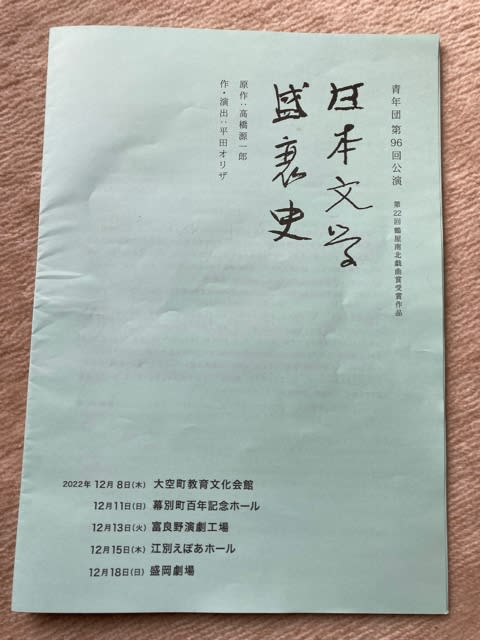 青年団 第96回公演
第22回鶴屋南北戯曲賞受賞作品
日本文学
盛衰史
原作：高橋源一郎
作・演出：平田オリザ
2022年 12月 8日(木) 大空町教育文化会館
12月11日(日) 幕別町百年記念ホール
12月13日(火) 富良野演劇工場
12月15日(木) 江別えぽあホール
12月18日(日) 盛岡劇場